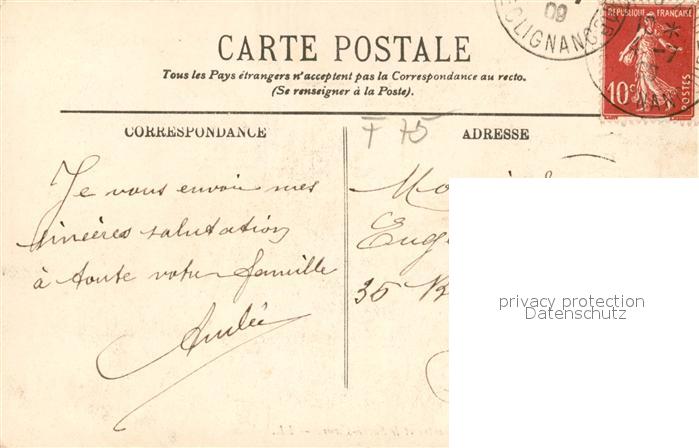 CARTE POSTALE
Tous les Pays étrangers n'acceptent pas la Correspondance au recto.
(Se renseigner à la Poste).
CORRESPONDANCE
ADRESSE
F 75
RÉPUBLIQUE FRANÇAISE
10c
POSTES
09
CLIGNANC
Je vous envoie mes
sincères salutation
à toute votre famille
Andrée
Eug
35
privacy protection
Datenschutz